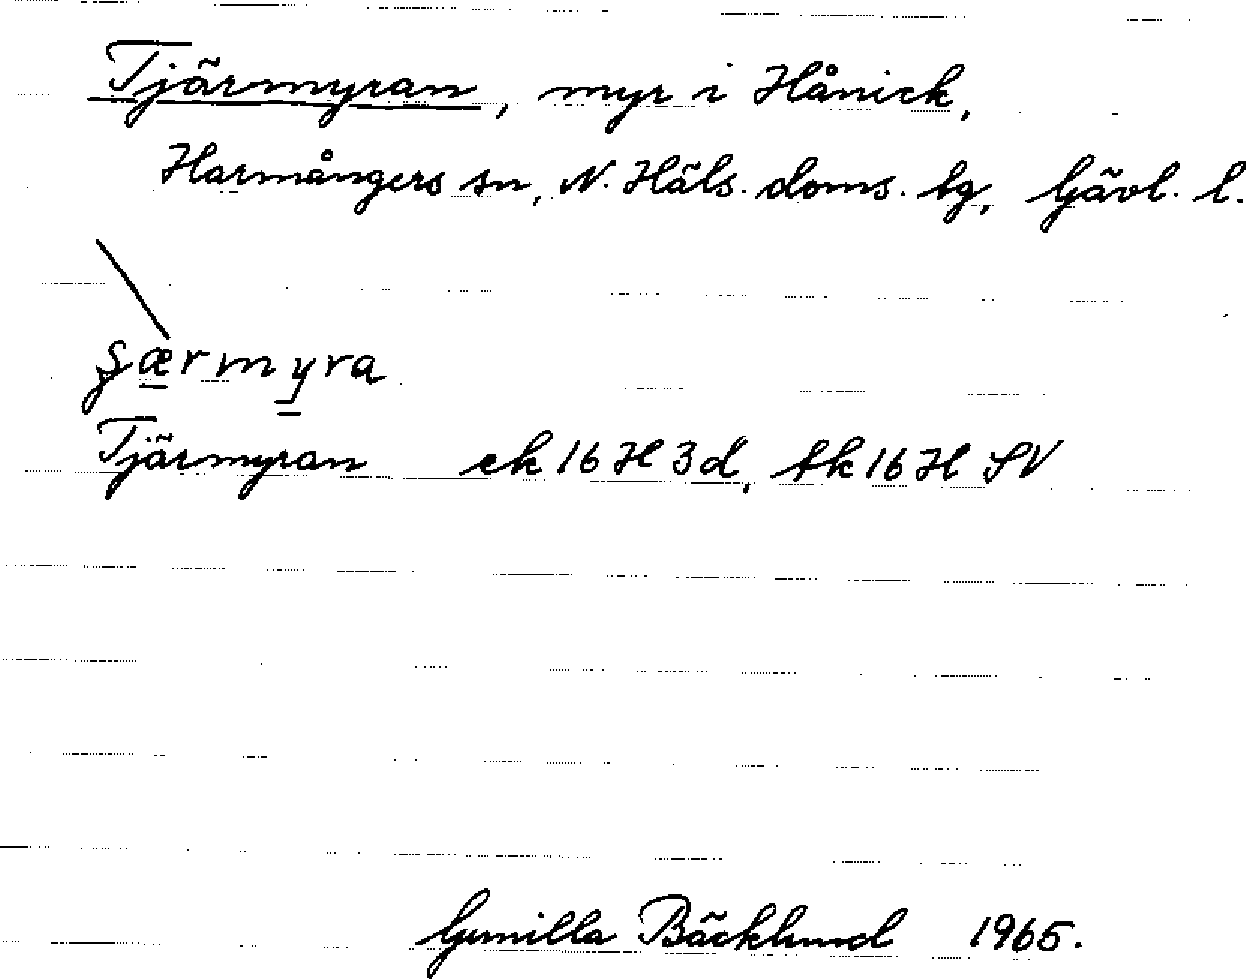 Tjärmyran, myr i Hånick,
Harmångers sn, N. Häls. doms. tg, Gävl. l.
Tjärmyran ek 16 H 3d, tk 16 H SV
Gunilla Bäcklund 1965.